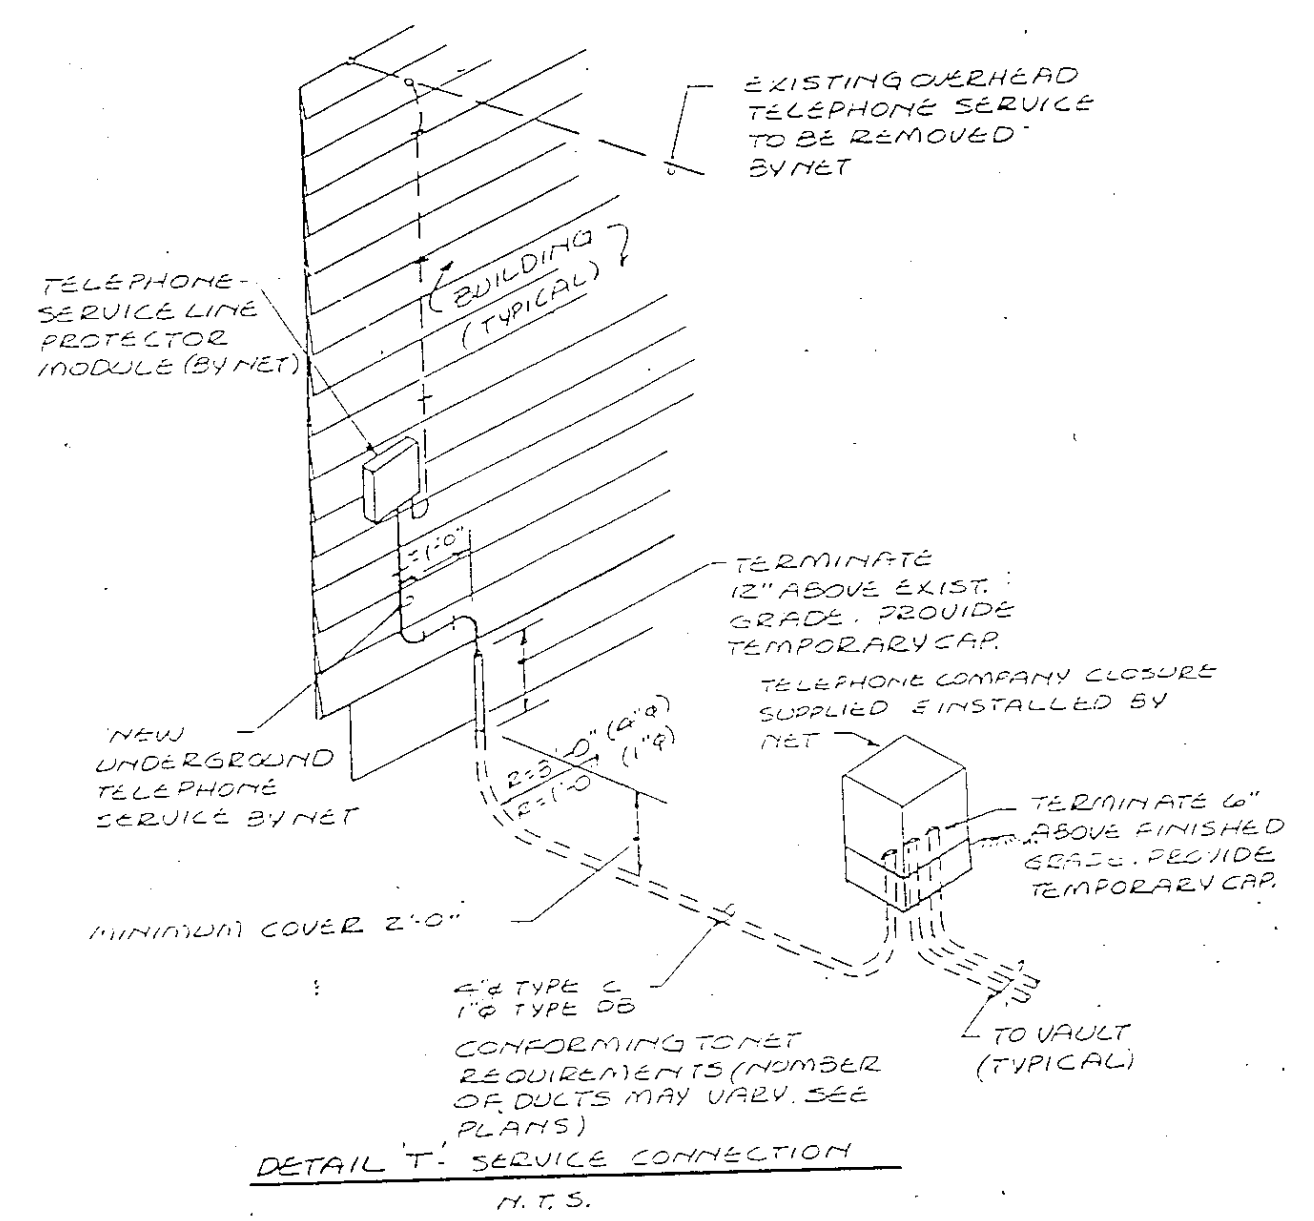 EXISTING OVERHEAD
TELEPHONE SERVICE
TO BE REMOVED
BY NET
BUILDING
(TYPICAL)
TELEPHONE
SERVICE LINE
PROTECTOR
MODULE (BY NET)
1'-0"
TERMINATE
12" ABOVE EXIST.
GRADE. PROVIDE
TEMPORARY CAP.
TELEPHONE COMPANY CLOSURE
SUPPLIED & INSTALLED BY
NET
NEW
UNDERGROUND
TELEPHONE
SERVICE BY NET
R=3'-0" (4"Φ)
R=1'-0" (1"Φ)
TERMINATE 6"
ABOVE FINISHED
GRADE. PROVIDE
TEMPORARY CAP.
MINIMUM COVER 2'-0"
4"Φ TYPE C
1"Φ TYPE DB
CONFORMING TO NET
REQUIREMENTS (NUMBER
OF DUCTS MAY VARY. SEE
PLANS)
TO VAULT
(TYPICAL)
DETAIL 'T' - SERVICE CONNECTION
N.T.S.